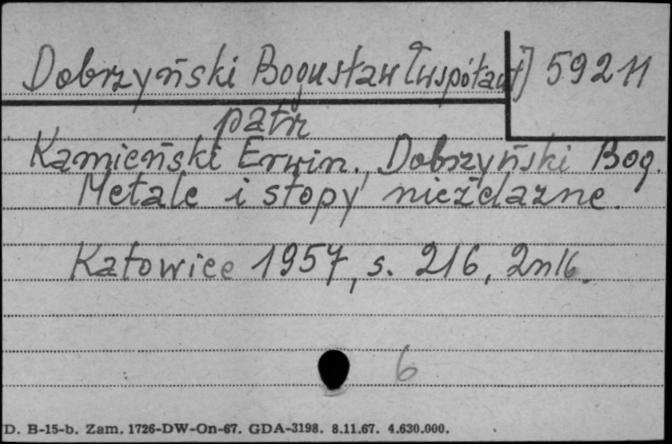 Dobrzyński Bogusław [współaut] 59211
patrz
Kamieński Erwin., Dobrzyński Bog.
Metale i stopy nieżelazne.
Katowice 1957, s. 216,
6
D. B-15-b. Zam. 1726-DW-On-67. GDA-3198. 8.11.67. 4.630.000.